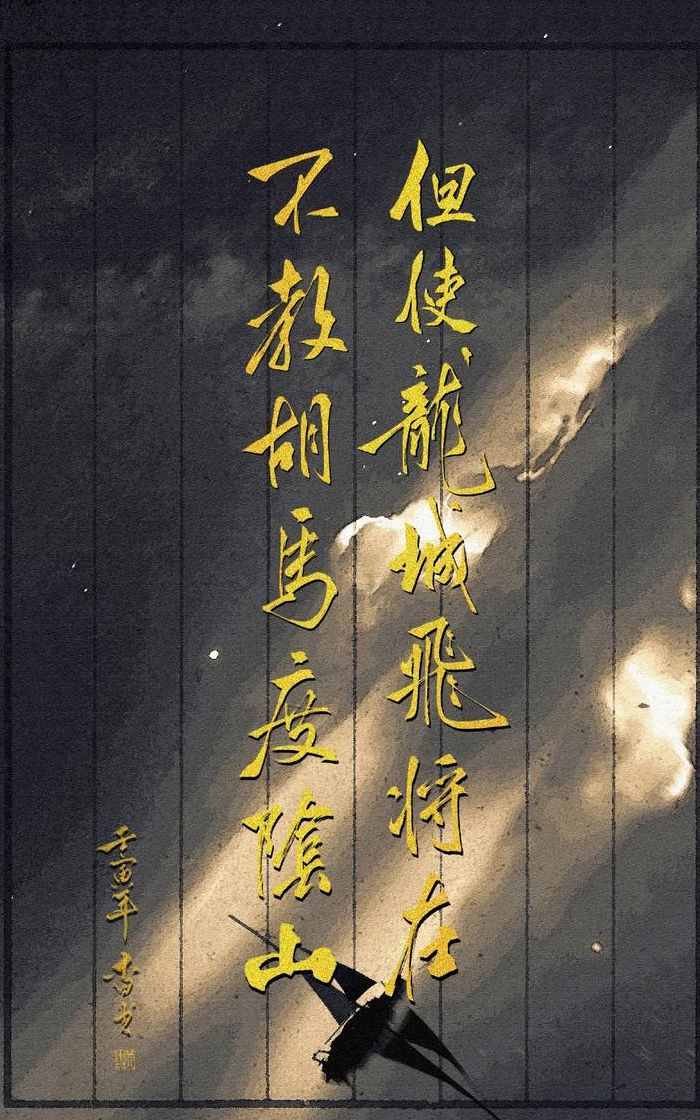 但使龍城飛将在
不教胡馬度陰山
壬寅年 书